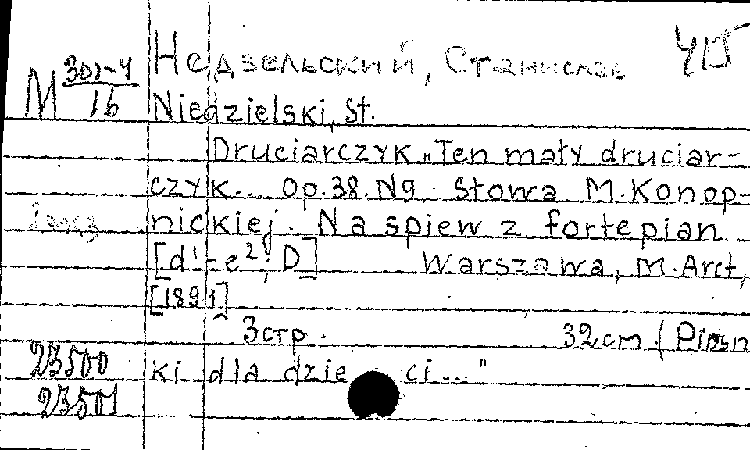 Недзельский, Станислав 415
М 301-4/16
Niedzielski, St.
Druciarczyk „Ten mały druciar-
czyk... Op.38.N9. Słowa M.Konop-
nickiej. Na śpiew z fortepian
[d¹-e²; D] Warszawa, M.Arct,
[1891]
3стр. 32cm. (Piosn
23500 ki dla dzie ci..."
23501